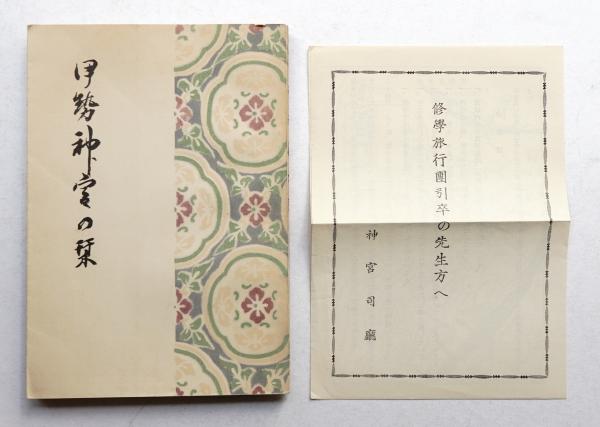 伊勢神宮の栞
修學旅行團引卒の先生方へ
神宮司廳